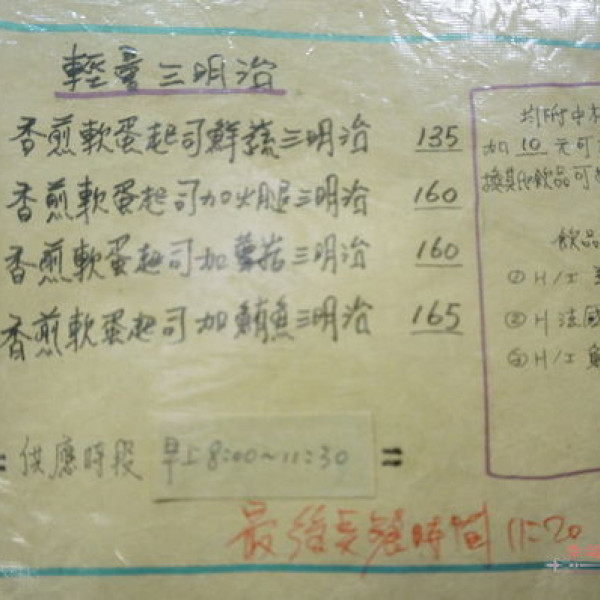 輕量三明治
香煎軟蛋起司鮮蔬三明治 135
香煎軟蛋起司加火腿三明治 160
香煎軟蛋起司加蘑菇三明治 160
香煎軟蛋起司加鮪魚三明治 165
= 供應時段 早上8:00~11:30 =
最後點餐時間 11:20
均附中
加 10 元可
換其他飲品可
飲品
① H/I
② H 法國
③ H/I